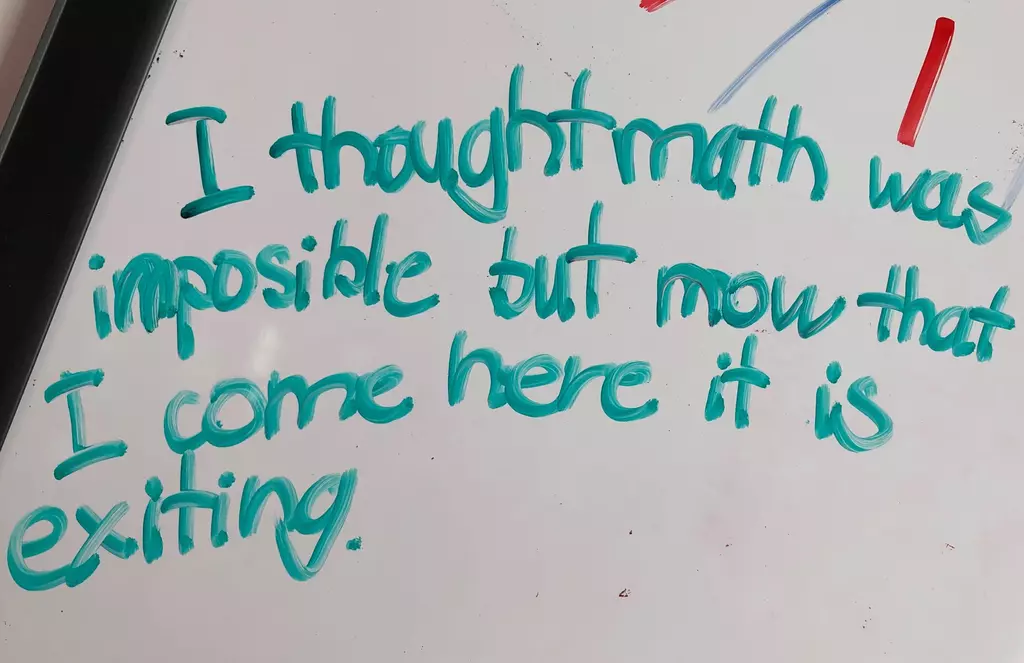 I thought math was
imposible but mow that
I come here it is
exiting.